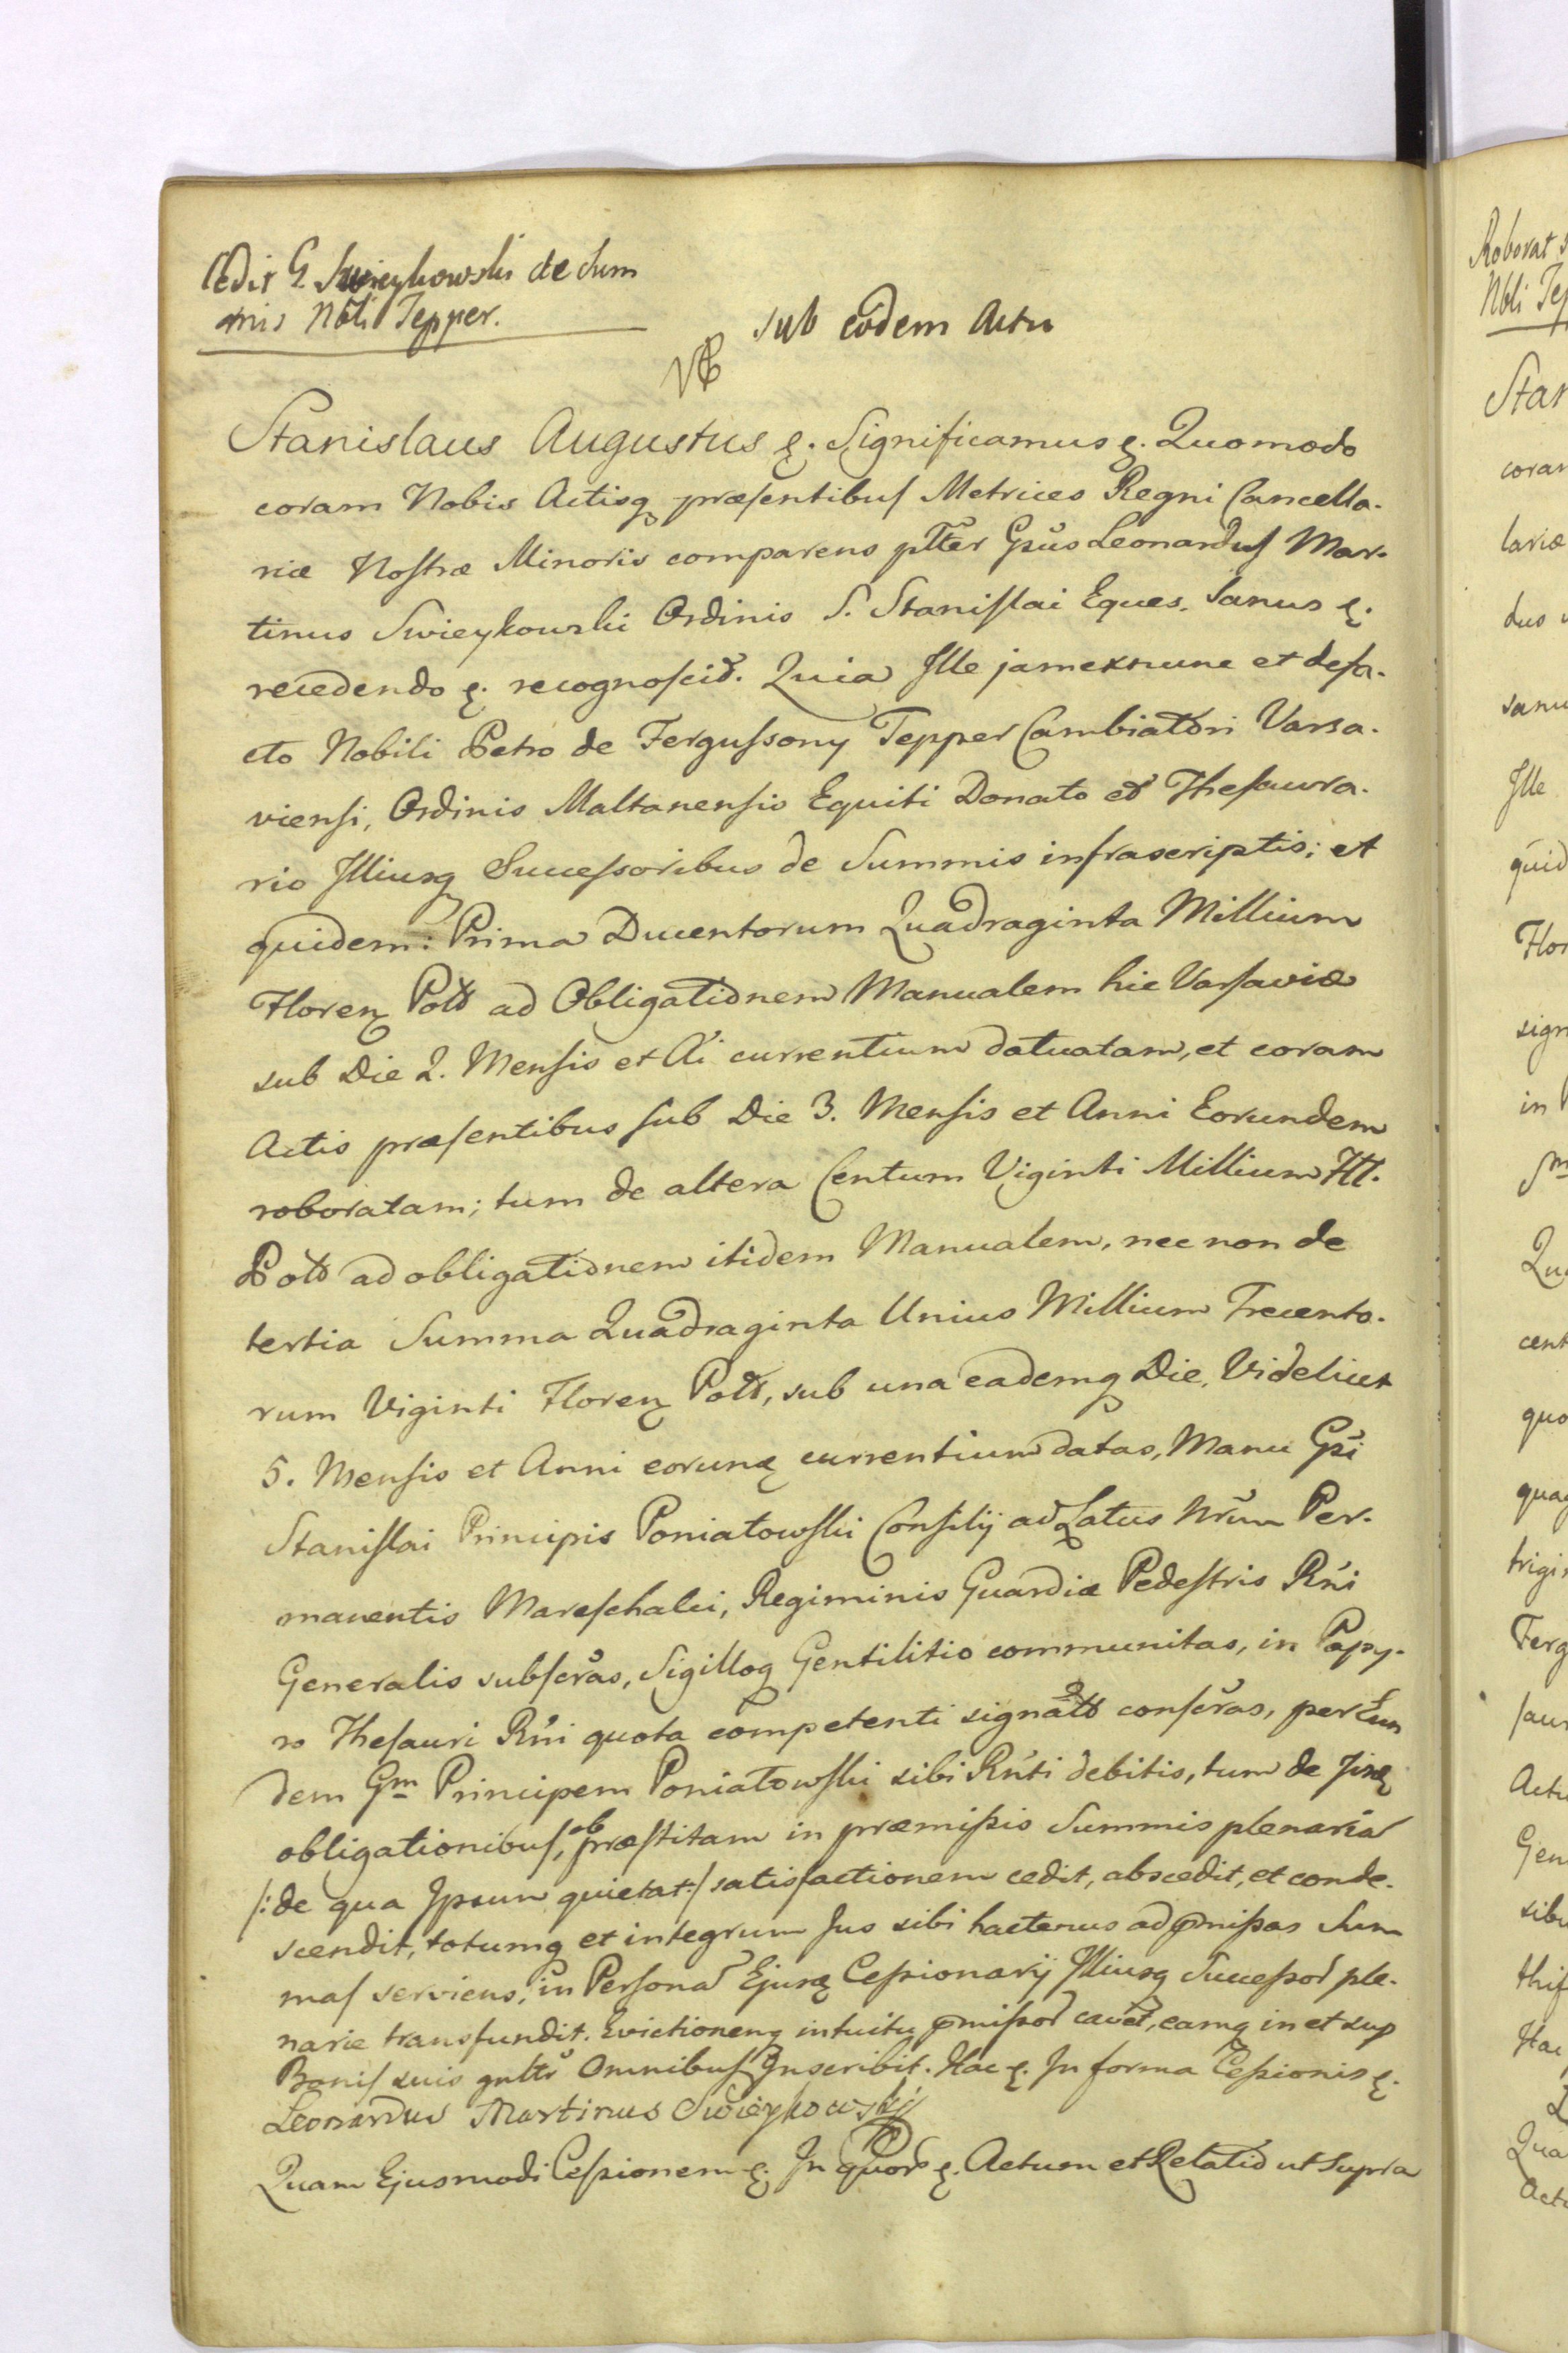 Cedit G. Swieykowski de Sum
mis Nbli Tepper.
sub eodem Actu
Stanislaus Augustus &. Significamus &. Quomodo
coram Nobis Actisq præsentibus Metrices Regni Cancella-
riæ Nostræ Minoris comparens plter Gsus Leonardus Mar-
tinus Swieykowski Ordinis S. Stanislai Eques. Sanus &.
recedendo &. recognoscit. Quia Ille jam ex nunc et defa-
cto Nobili Petro de Fergussony Tepper Cambiatori Varsa-
viensi, Ordinis Maltanensis Equiti Donato et Thesaura-
rio Illiusq Successoribus de Summis infrascriptis; et
quidem: Prima Ducentorum Quadraginta Millium
Floren Polł ad Obligationem Manualem hic Varsaviæ
sub Die 2. Mensis et Ai currentium datuatam, et coram
Actis præsentibus sub Die 3. Mensis et Anni Eorundem
roboratam; tum de altera Centum Viginti Millium Fll.
Polł ad obligationem itidem Manualem, nec non de
tertia Summa Quadraginta Unius Millium Trecento-
rum Viginti Floren Polł, sub una eademq Die, Videlicet
5. Mensis et Anni eorund currentium datas, Manu Gsi
Stanislai Principis Poniatowski Consilij ad Latus Nrum Per-
manentis Mareschalci, Regiminis Guardiæ Pedestris Rni
Generalis subscras, Sigilloq Gentilitio communitas, in Papy-
ro Thesauri Rni quota competenti signato conscras, per Eun
dem Gm Principem Poniatowski sibi Rnti debitis, tum de Jisd
obligationibus, ob præstitam in præmissis Summis plenaria
/: de qua Ipsum quietat :/ satisfactionem cedit, abscedit, et conde-
scendit, totumq et integrum Jus sibi hactenus ad pmissas Sum
mas serviens, in Persona Ejusd Cessionarij Illiusq Successor ple-
narie transfundit. Evictionemq intuitu pmissor cavet, eamq in et sup
Bonis suis gnltr Omnibus Inscribit. Hac &. In forma Cessionis &.
Leonardus Martinus Swieykowskij
Quam Ejusmodi Cessionem &. In quor &. Actum et Relatio ut Supra
Roborat
Nbli
Star
coram
lariæ
dus
Ille
quid
in
trigin
Ferg
Actu
Gen
Hac
Qua